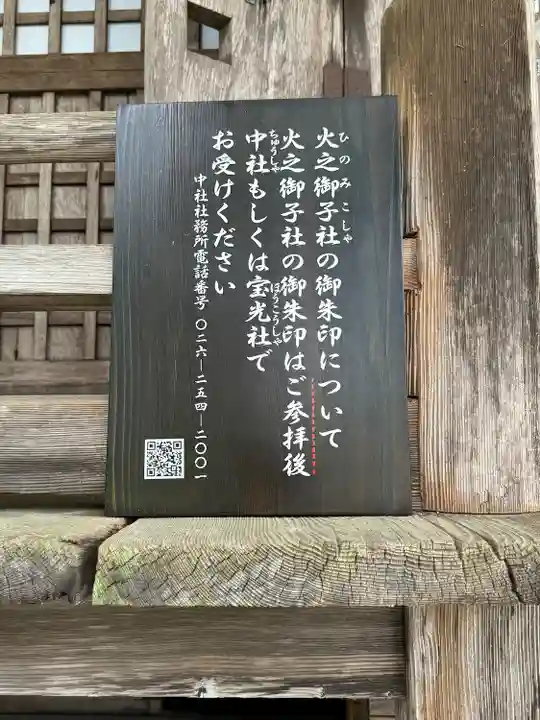 火之御子社の御朱印について
火之御子社の御朱印はご参拝後
中社もしくは宝光社で
お受けください
中社社務所電話番号 〇二六―二五四―二〇〇一
ひのみこしゃ
ちゅうしゃ
ほうこうしゃ